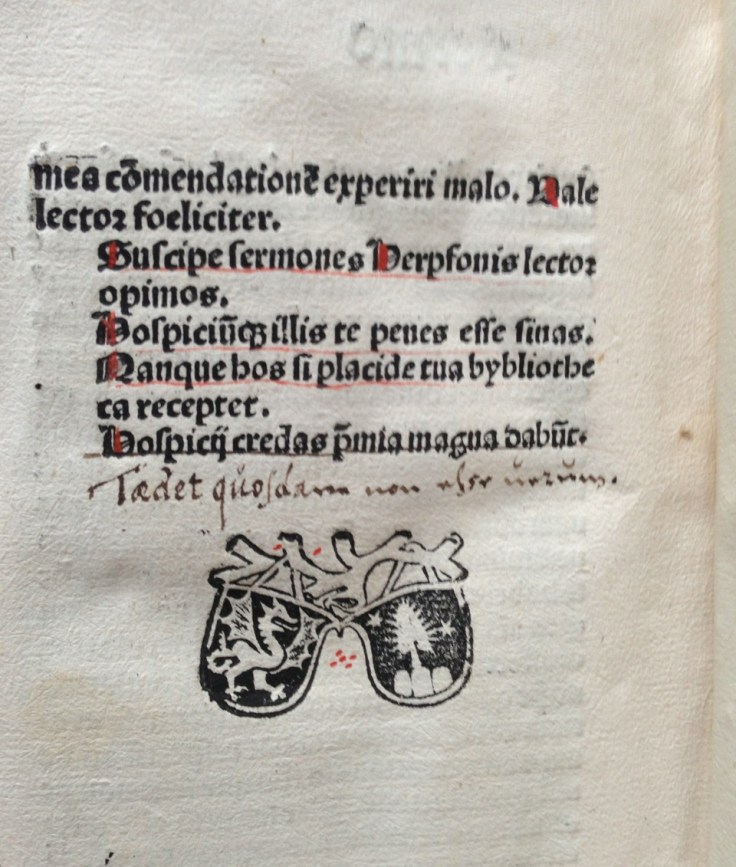 mea cōmendationē experiri malo. Vale
lector foeliciter.
Suscipe sermones Verpfonis lector
opimos.
Hospiciūqꝫ illis te penes esse sinas.
Nanque hos si placide tua bybliothe
ca receptet.
Hospicij credas p̄mia magna dabūt.
Tædet quosdam non esse uerum.